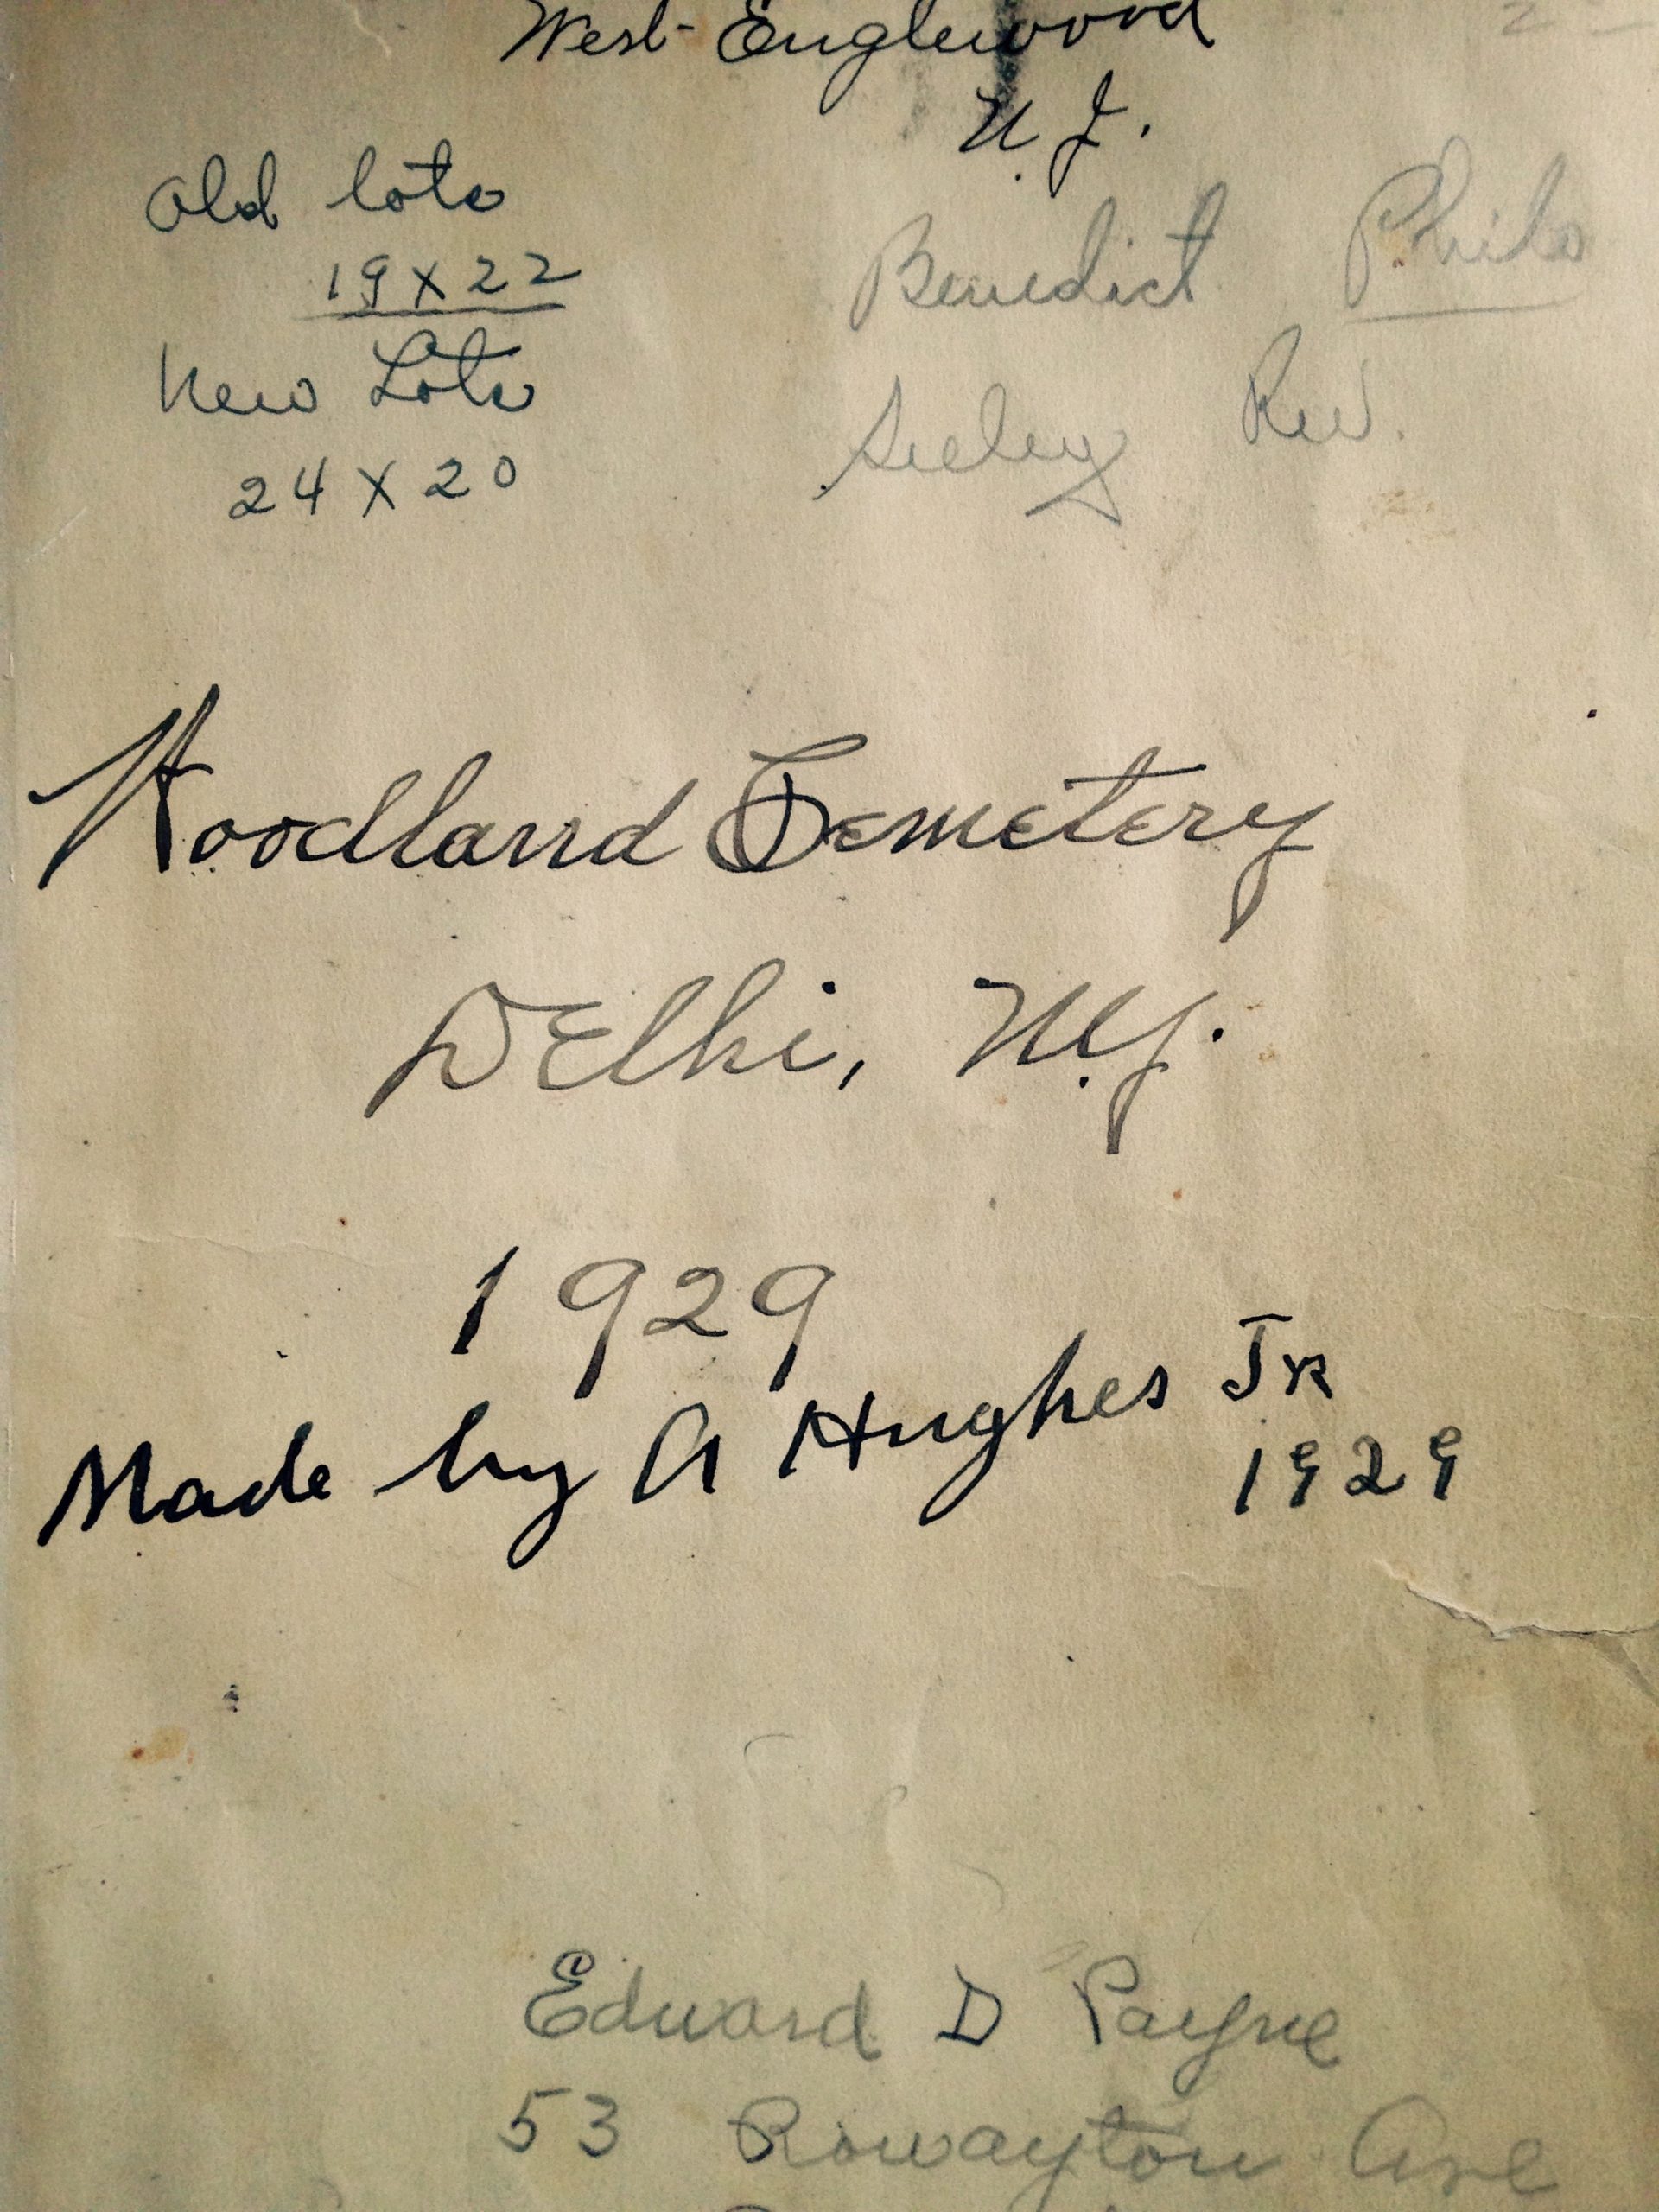 West Englewood
N. J.
Old lots
19 X 22
New Lots
24 X 20
Benedict Philo
Seeley Rev.
Woodland Cemetery
Delhi, N.Y.
1929
Made by A Hughes Jr
1929
Edward D Payne
53 Rowayton Ave